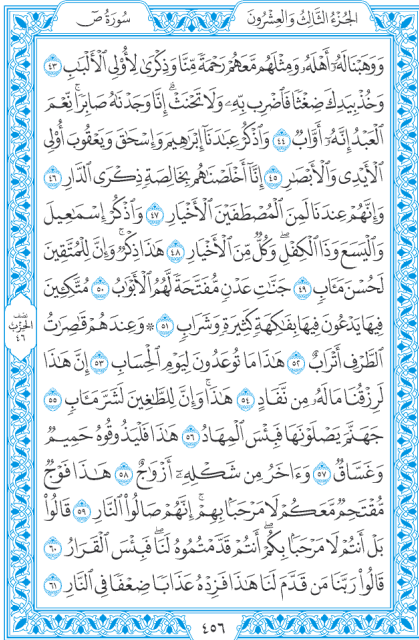 الجُزءُ الثَّالِثُ وَالعِشْرُونَ
سُورَةُ صٓ
وَوَهَبْنَا لَهُۥٓ أَهْلَهُۥ وَمِثْلَهُم مَّعَهُمْ رَحْمَةً مِّنَّا وَذِكْرَىٰ لِأُوْلِي ٱلْأَلْبَٰبِ ٤٣
وَخُذْ بِيَدِكَ ضِغْثًا فَٱضْرِب بِّهِۦ وَلَا تَحْنَثْ ۗ إِنَّا وَجَدْنَٰهُ صَابِرًا ۚ نِّعْمَ
ٱلْعَبْدُ إِنَّهُۥٓ أَوَّابٌ ٤٤ وَٱذْكُرْ عِبَٰدَنَآ إِبْرَٰهِيمَ وَإِسْحَٰقَ وَيَعْقُوبَ أُوْلِي
ٱلْأَيْدِي وَٱلْأَبْصَٰرِ ٤٥ إِنَّآ أَخْلَصْنَٰهُم بِخَالِصَةٍ ذِكْرَى ٱلدَّارِ ٤٦
وَإِنَّهُمْ عِندَنَا لَمِنَ ٱلْمُصْطَفَيْنَ ٱلْأَخْيَارِ ٤٧ وَٱذْكُرْ إِسْمَٰعِيلَ
وَٱلْيَسَعَ وَذَا ٱلْكِفْلِ ۖ وَكُلٌّ مِّنَ ٱلْأَخْيَارِ ٤٨ هَٰذَا ذِكْرٌ ۚ وَإِنَّ لِلْمُتَّقِينَ
لَحُسْنَ مَـَٔابٍ ٤٩ جَنَّٰتِ عَدْنٍ مُّفَتَّحَةً لَّهُمُ ٱلْأَبْوَٰبُ ٥٠ مُتَّكِـِٔينَ
فِيهَا يَدْعُونَ فِيهَا بِفَٰكِهَةٍ كَثِيرَةٍ وَشَرَابٍ ٥١ ۞ وَعِندَهُمْ قَٰصِرَٰتُ
ٱلطَّرْفِ أَتْرَابٌ ٥٢ هَٰذَا مَا تُوعَدُونَ لِيَوْمِ ٱلْحِسَابِ ٥٣ إِنَّ هَٰذَا
لَرِزْقُنَا مَا لَهُۥ مِن نَّفَادٍ ٥٤ هَٰذَا ۚ وَإِنَّ لِلطَّٰغِينَ لَشَرَّ مَـَٔابٍ ٥٥
جَهَنَّمَ يَصْلَوْنَهَا فَبِئْسَ ٱلْمِهَادُ ٥٦ هَٰذَا فَلْيَذُوقُوهُ حَمِيمٌ
وَغَسَّاقٌ ٥٧ وَءَاخَرُ مِن شَكْلِهِۦٓ أَزْوَٰجٌ ٥٨ هَٰذَا فَوْجٌ
مُّقْتَحِمٌ مَّعَكُمْ لَا مَرْحَبًۢا بِهِمْ ۚ إِنَّهُمْ صَالُواْ ٱلنَّارِ ٥٩ قَالُواْ
بَلْ أَنتُمْ لَا مَرْحَبًۢا بِكُمْ ۖ أَنتُمْ قَدَّمْتُمُوهُ لَنَا ۖ فَبِئْسَ ٱلْقَرَارُ ٦٠
قَالُواْ رَبَّنَا مَن قَدَّمَ لَنَا هَٰذَا فَزِدْهُ عَذَابًا ضِعْفًا فِي ٱلنَّارِ ٦١
نصف
الحزب
٤٦
٤٥٦